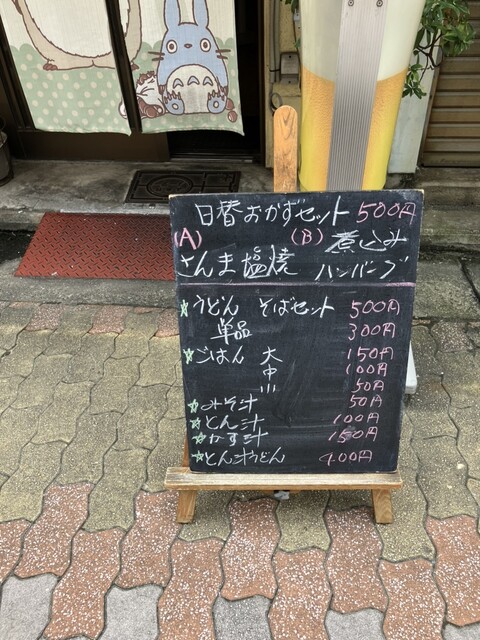 日替おかずセット 500円
(A) (B) 煮込み
さんま塩焼 ハンバーグ
☆うどん そばセット 500円
単品 300円
☆ごはん 大 150円
中 100円
小 50円
☆みそ汁 50円
☆とん汁 100円
☆かす汁 150円
☆とん汁うどん 400円